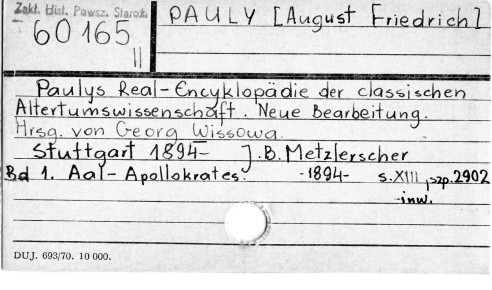 Zakł. Hist. Powsz. Staroż.
60165
II
PAULY [August Friedrich]
Paulys Real-Encyklopädie der classischen
Altertumswissenschaft. Neue Bearbeitung.
Hrsg. von Georg Wissowa.
Stuttgart 1894- J.B. Metzlerscher
Bd 1. Aal-Apollokrates. -1894- s. XIII, szp. 2902
-inw.
DUJ. 693/70. 10 000.